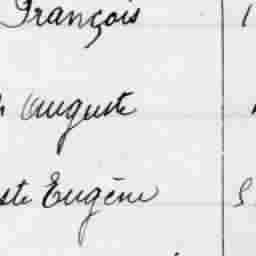 François
Auguste
ste Eugène